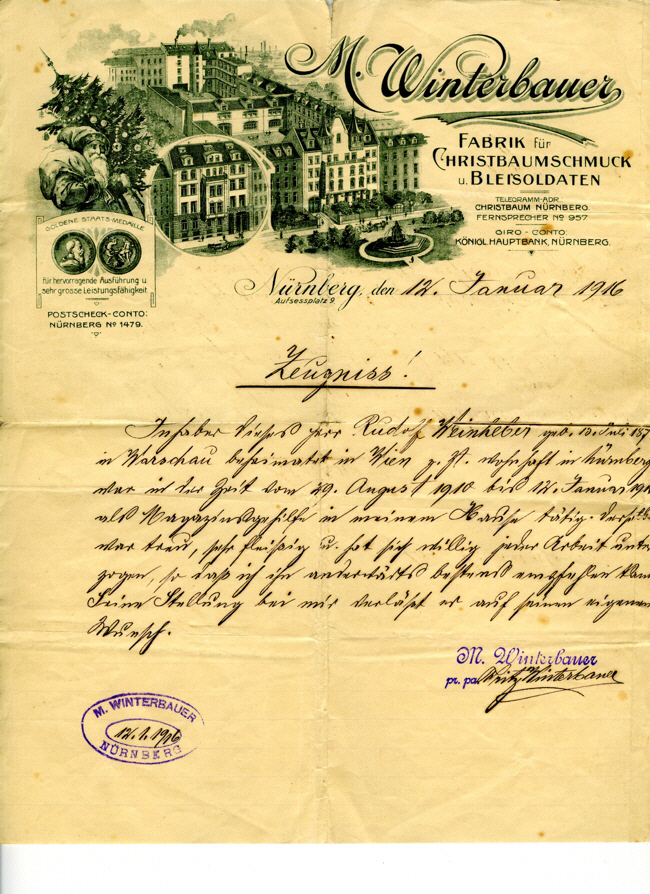 M. Winterbauer
FABRIK für
CHRISTBAUMSCHMUCK
u. BLEISOLDATEN
TELEGRAMM-ADR.
CHRISTBAUM NÜRNBERG.
FERNSPRECHER No 957
GIRO-CONTO:
KÖNIGL. HAUPTBANK, NÜRNBERG.
GOLDENE STAATS-MEDAILLE
für hervorragende Ausführung u.
sehr grosse Leistungsfähigkeit
POSTSCHECK-CONTO:
NÜRNBERG No 1479.
Nürnberg, den 12. Januar 1916
Aufsessplatz 9
Zeugniss!
Inhaber dieses Herr Rudolf Weinheber geb. 13. Juli 187
in Warschau beheimatet in Wien z. Zt. wohnhaft in Nürnberg
war in der Zeit vom 29. August 1910 bis 12. Januar 191
als Magazinsgehilfe in meinem Hause tätig.
war treu, sehr fleißig u. hat sich willig jeder Arbeit unter
zogen, so daß ich ihn anderwärts bestens empfehlen kann
Seine Stellung bei mir verläßt er auf seinen eigenen
Wunsch.
M. Winterbauer
pr. pa. Fritz Winterbauer
M. WINTERBAUER
12.1.1916
NÜRNBERG